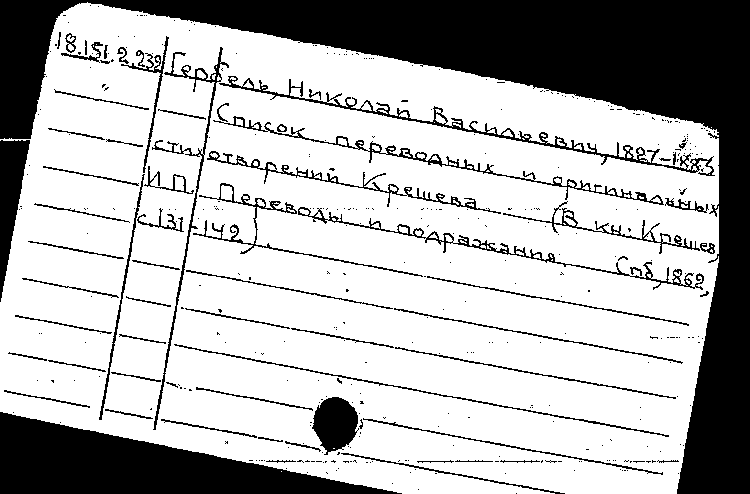 18.151.2.232 Гербель, Николай Васильевич, 1827-1883
Список переводных и оригинальных
стихотворений Крешева (В кн: Крешев,
И.П. Переводы и подражания. Спб, 1862,
с.131-142).